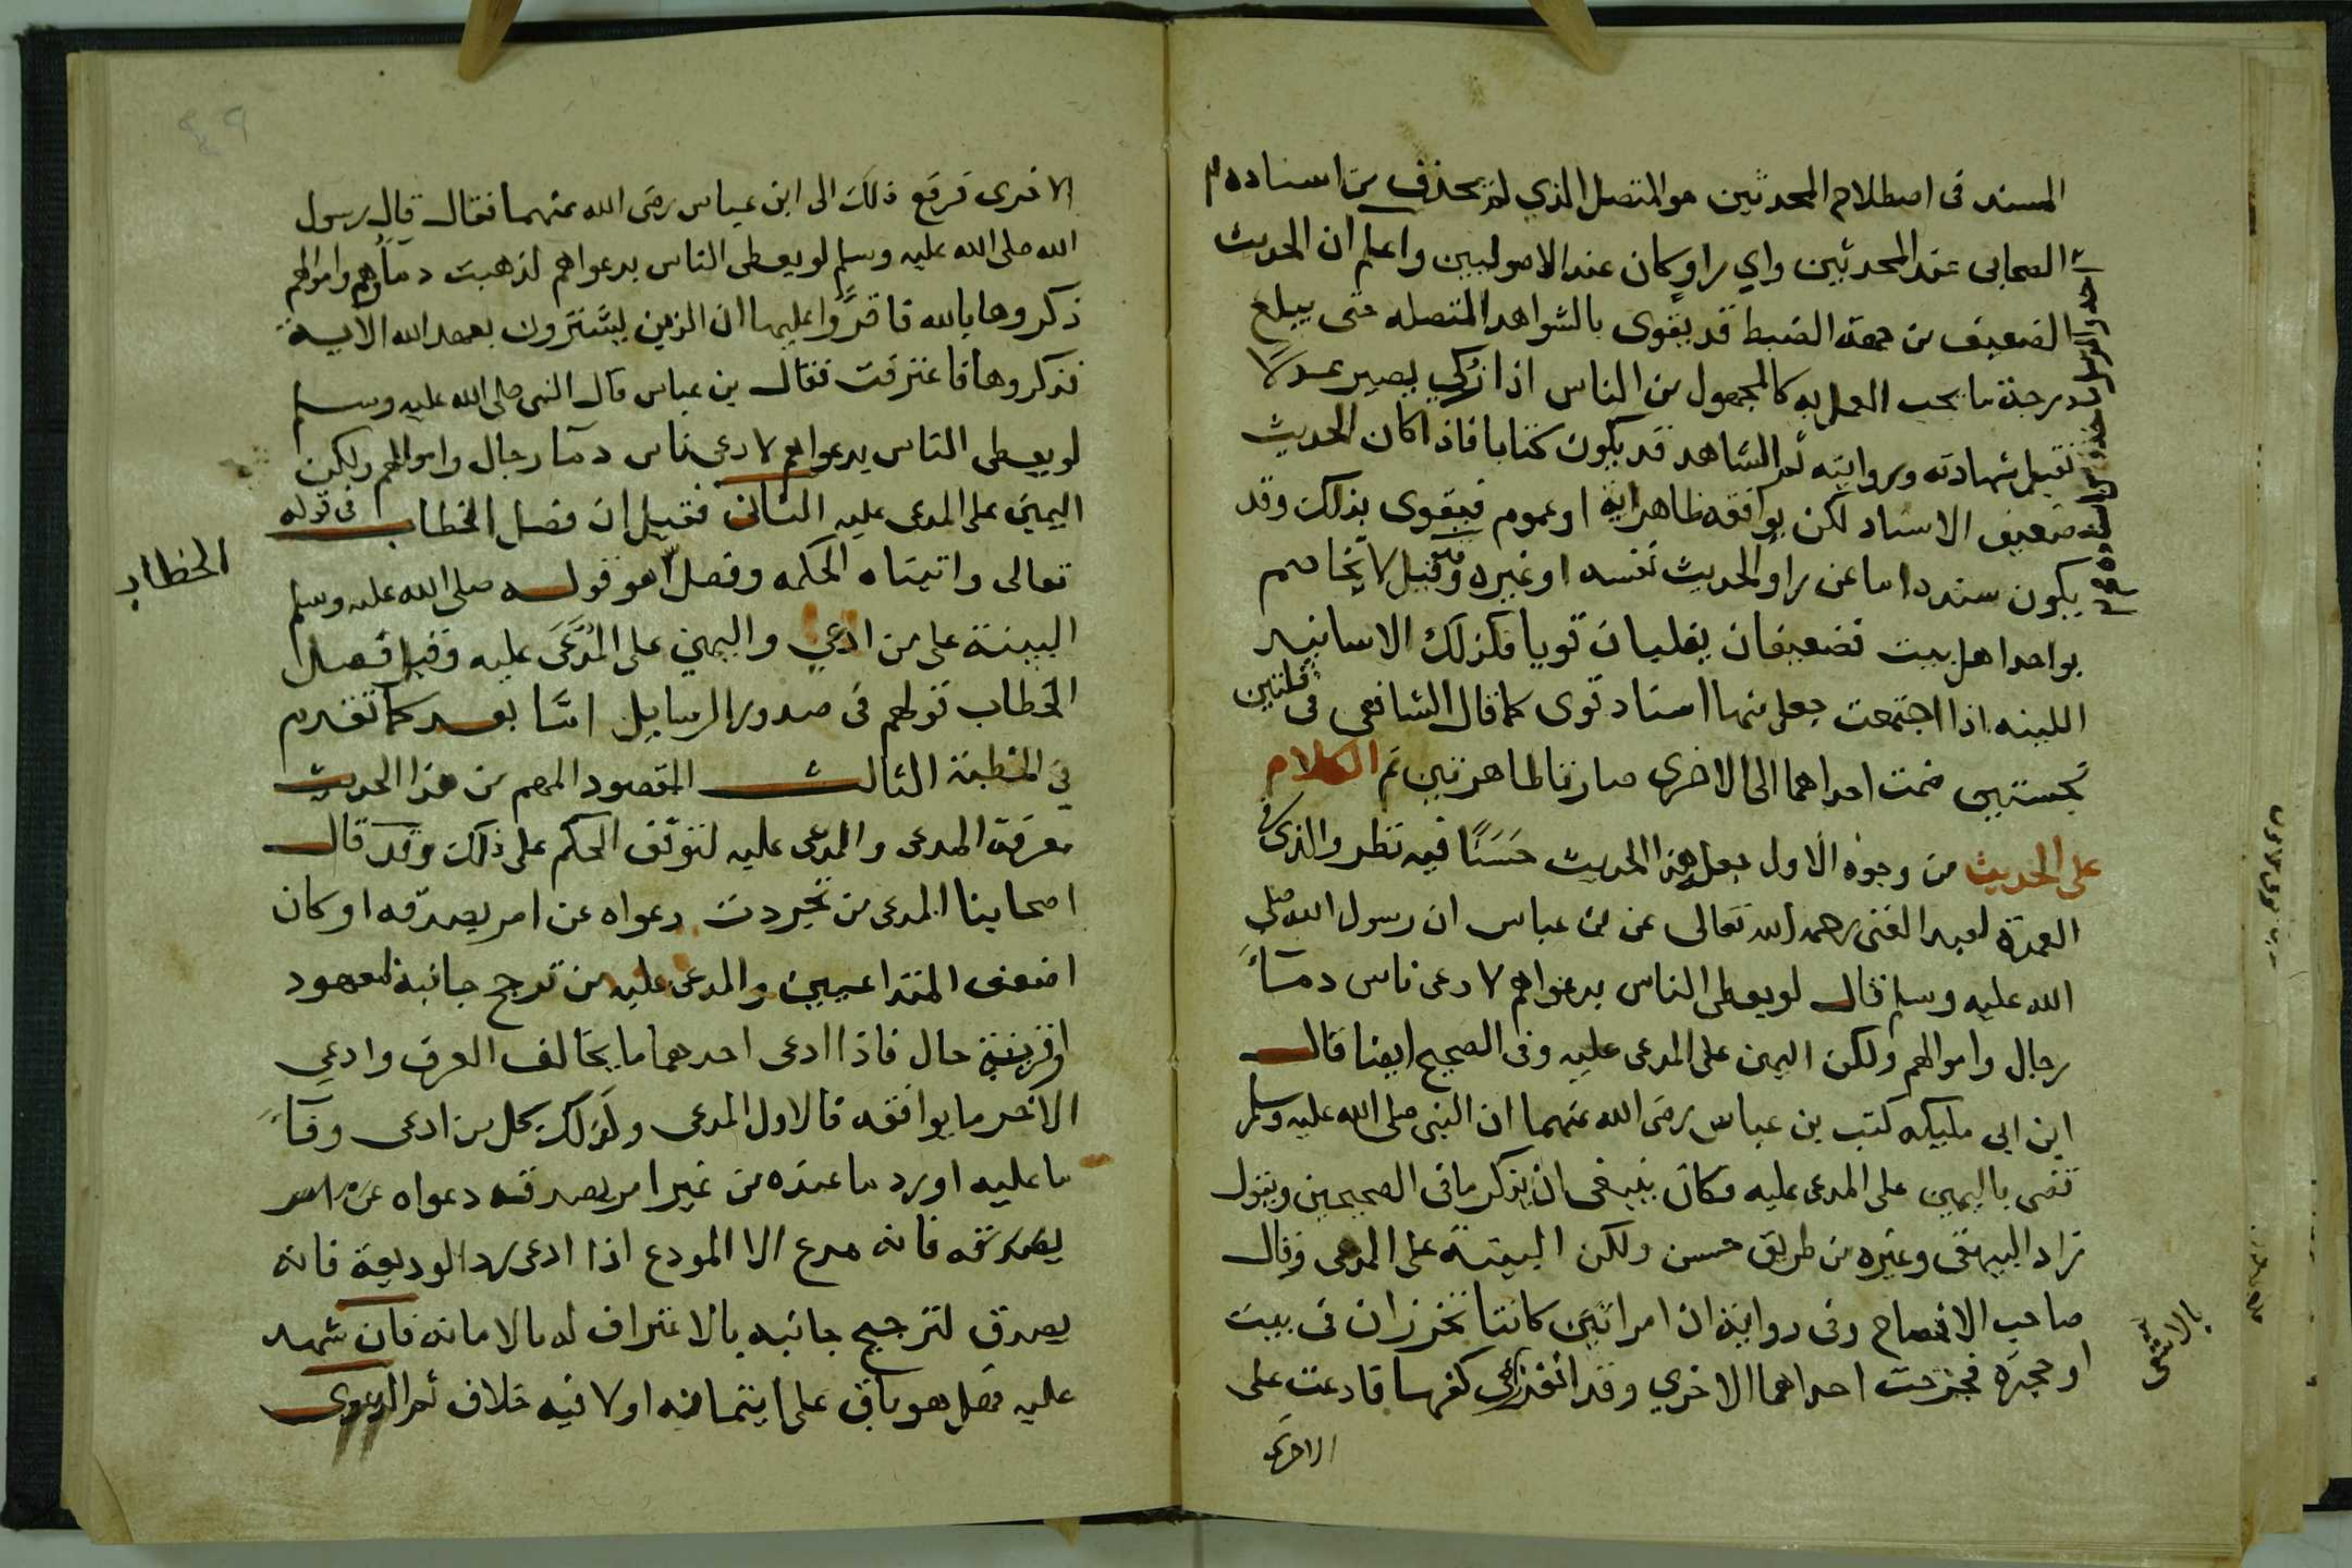 المسند فى اصطلاح المحدثين هو المتصل الذي لم يحذف من اسناده
الصحابى عند المحدثين واي راو كان عند الاصوليين واعلم ان الحديث
الضعيف من جهة الضبط قد يقوى بالشواهد المتصله حتى يبلغ
درجة ما يجب العمل به كالمجهول من الناس اذا زكي يصير عدلا
تقبل شهادته وروايته ثم الشاهد قد يكون كتابا فاذا كان الحديث
ضعيف الاسناد لكن يوافقه ظاهر اية او عموم فيقوى بذلك وقد
يكون سنده اما عن راو الحديث نفسه او غيره وقد قيل لا تخاصم
بواحد اهل بيت فضعيفان يغلبان قويا فكذلك الاسانيد
اللينه اذا اجتمعت جعل منها اسناد قوى كما قال الشافعى فى قلتين
نجستين ضمت احداهما الى الاخرى صارتا طاهرتين ثم الكلام
على الحديث من وجوه الاول جعل هذا الحديث حسنًا فيه نظر والذى فى
العمدة لعبد الغنى رحمه الله تعالى عن بن عباس ان رسول الله صلى
الله عليه وسلم قال لو يعطى الناس بدعواهم لادعى ناس دماء
رجال واموالهم ولكن اليمين على المدعى عليه وفى الصحيح ايضا قال
ابن ابى مليكه كتب بن عباس رضى الله عنهما ان النبى صلى الله عليه وسلم
قضى باليمين على المدعى عليه فكان ينبغى ان يذكر ما فى الصحيحين ويقول
زاد البيهقى وغيره من طريق حسن ولكن البينة على المدعى وقال
صاحب الافصاح وفى رواية ان امراتين كانتا تخرزان فى بيت
او حجره فجرحت احداهما الاخري وقد انفذ فى كفها فادعت على
بالاشفى
الاخرى
الاخرى فرفع ذلك الى ابن عباس رضى الله عنهما فقال قال رسول
الله صلى الله عليه وسلم لو يعطى الناس بدعواهم لذهبت دماؤهم واموالهم
ذكروها بالله فاقرؤا عليها ان الذين يشترون بعهد الله الآية
فذكروها فاعترفت فقال بن عباس قال النبى صلى الله عليه وسلم
لو يعطى الناس بدعواهم لادعى ناس دماء رجال واموالهم ولكن
اليمين على المدعى عليه الثانى فقيل ان فصل الخطاب فى قوله
تعالى واتيناه الحكمه وفصل هو قوله صلى الله عليه وسلم
الخطاب
البينة على من ادعي واليمين على المُدَّعَى عليه وقيل فصل
الخطاب قولهم فى صدور الرسايل امّا بعد كما تقدم
في الخطبة الثالث المقصود المهم من هذا الحديث
معرفة المدعى والمدعى عليه لتوقف الحكم على ذلك وقد قال
اصحابنا المدعى من تجردت دعواه عن امر يصدقه او كان
اضعف المتداعيين والمدعى عليه من ترجح جانبه لمعهود
او قرينة حال فاذا ادعى احدهما ما يخالف العرف وادعي
الاخر ما يوافقه فالاول المدعى وكذلك كل من ادعى وفآء
ما عليه او رد ما عنده من غير امر يصدقه دعواه عن امر
يصدقه فانه مدع الا المودع اذا ادعى رد الوديعة فانه
يصدق لترجيح جانبه بالاعتراف له بالامانه فان شهد
عليه فهل هو باق على ايتمانه او لا فيه خلاف ثم الدعوى